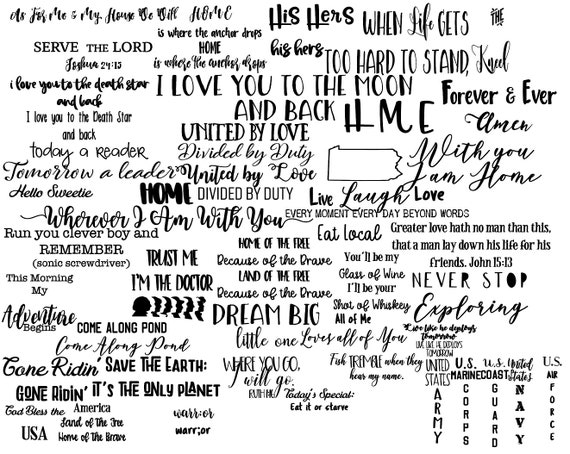 As For Me & My House We Will
SERVE THE LORD
Joshua 24:15
HOME
is where the anchor drops
HOME
is where the anchor drops
His Hers
his hers
WHEN Life GETS
TOO HARD TO STAND, Kneel
THE
i love you to the death star
and back
I love you to the Death Star
and back
I LOVE YOU TO THE MOON
AND BACK
H M E
Forever & Ever
Amen
today a reader
Tomorrow a leader
UNITED BY LOVE
Divided by Duty
United by Love
DIVIDED BY DUTY
With you
I am Home
Hello Sweetie
HOME
Live Laugh Love
Wherever I Am With You
EVERY MOMENT EVERY DAY BEYOND WORDS
Run you clever boy and
REMEMBER
(sonic screwdriver)
TRUST ME
I'M THE DOCTOR
HOME OF THE FREE
Because of the Brave
LAND OF THE FREE
Because of the Brave
Eat Local
Greater love hath no man than this,
that a man lay down his life for his
friends. John 15:13
You'll be my
Glass of Wine
I'll be your
Shot of Whiskey
All of Me
Loves all of You
NEVER STOP
Exploring
This Morning
My
Adventure
Begins
DREAM BIG
little one
COME ALONG POND
Come Along Pond
Live like he deploys
tomorrow
LIVE LIKE HE DEPLOYS
TOMORROW
Gone Ridin'
GONE RIDIN'
SAVE THE EARTH:
IT'S THE ONLY PLANET
WHERE YOU GO,
I will go.
RUTH 1:16
Fish TREMBLE when they
hear my name.
Today's Special:
Eat it or starve
God Bless the
USA
America
Land of The Free
Home of The Brave
warr;or
warr;or
UNITED
STATES
ARMY
U.S.
MARINE
CORPS
U.S.
COAST
GUARD
United
States
NAVY
U.S.
AIR
FORCE